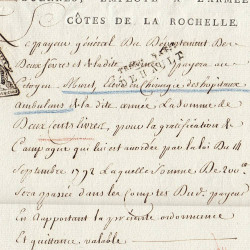 CÔTES DE LA ROCHELLE.
payeur général Du Département Des
Deux sèvres et de la dite armée payera au
Citoyen Muret, Élève en Chirurgie des hopitaux
Ambulans de la dite armée, La somme de
Deux Cents livres, pour la gratification de
Campagne qui lui est accordée par la loi du 14
Septembre 1792 Laquelle somme De
Sera passée dans les Comptes Dud. payeur
En Rapportant la présente ordonnance
Et quittance valable